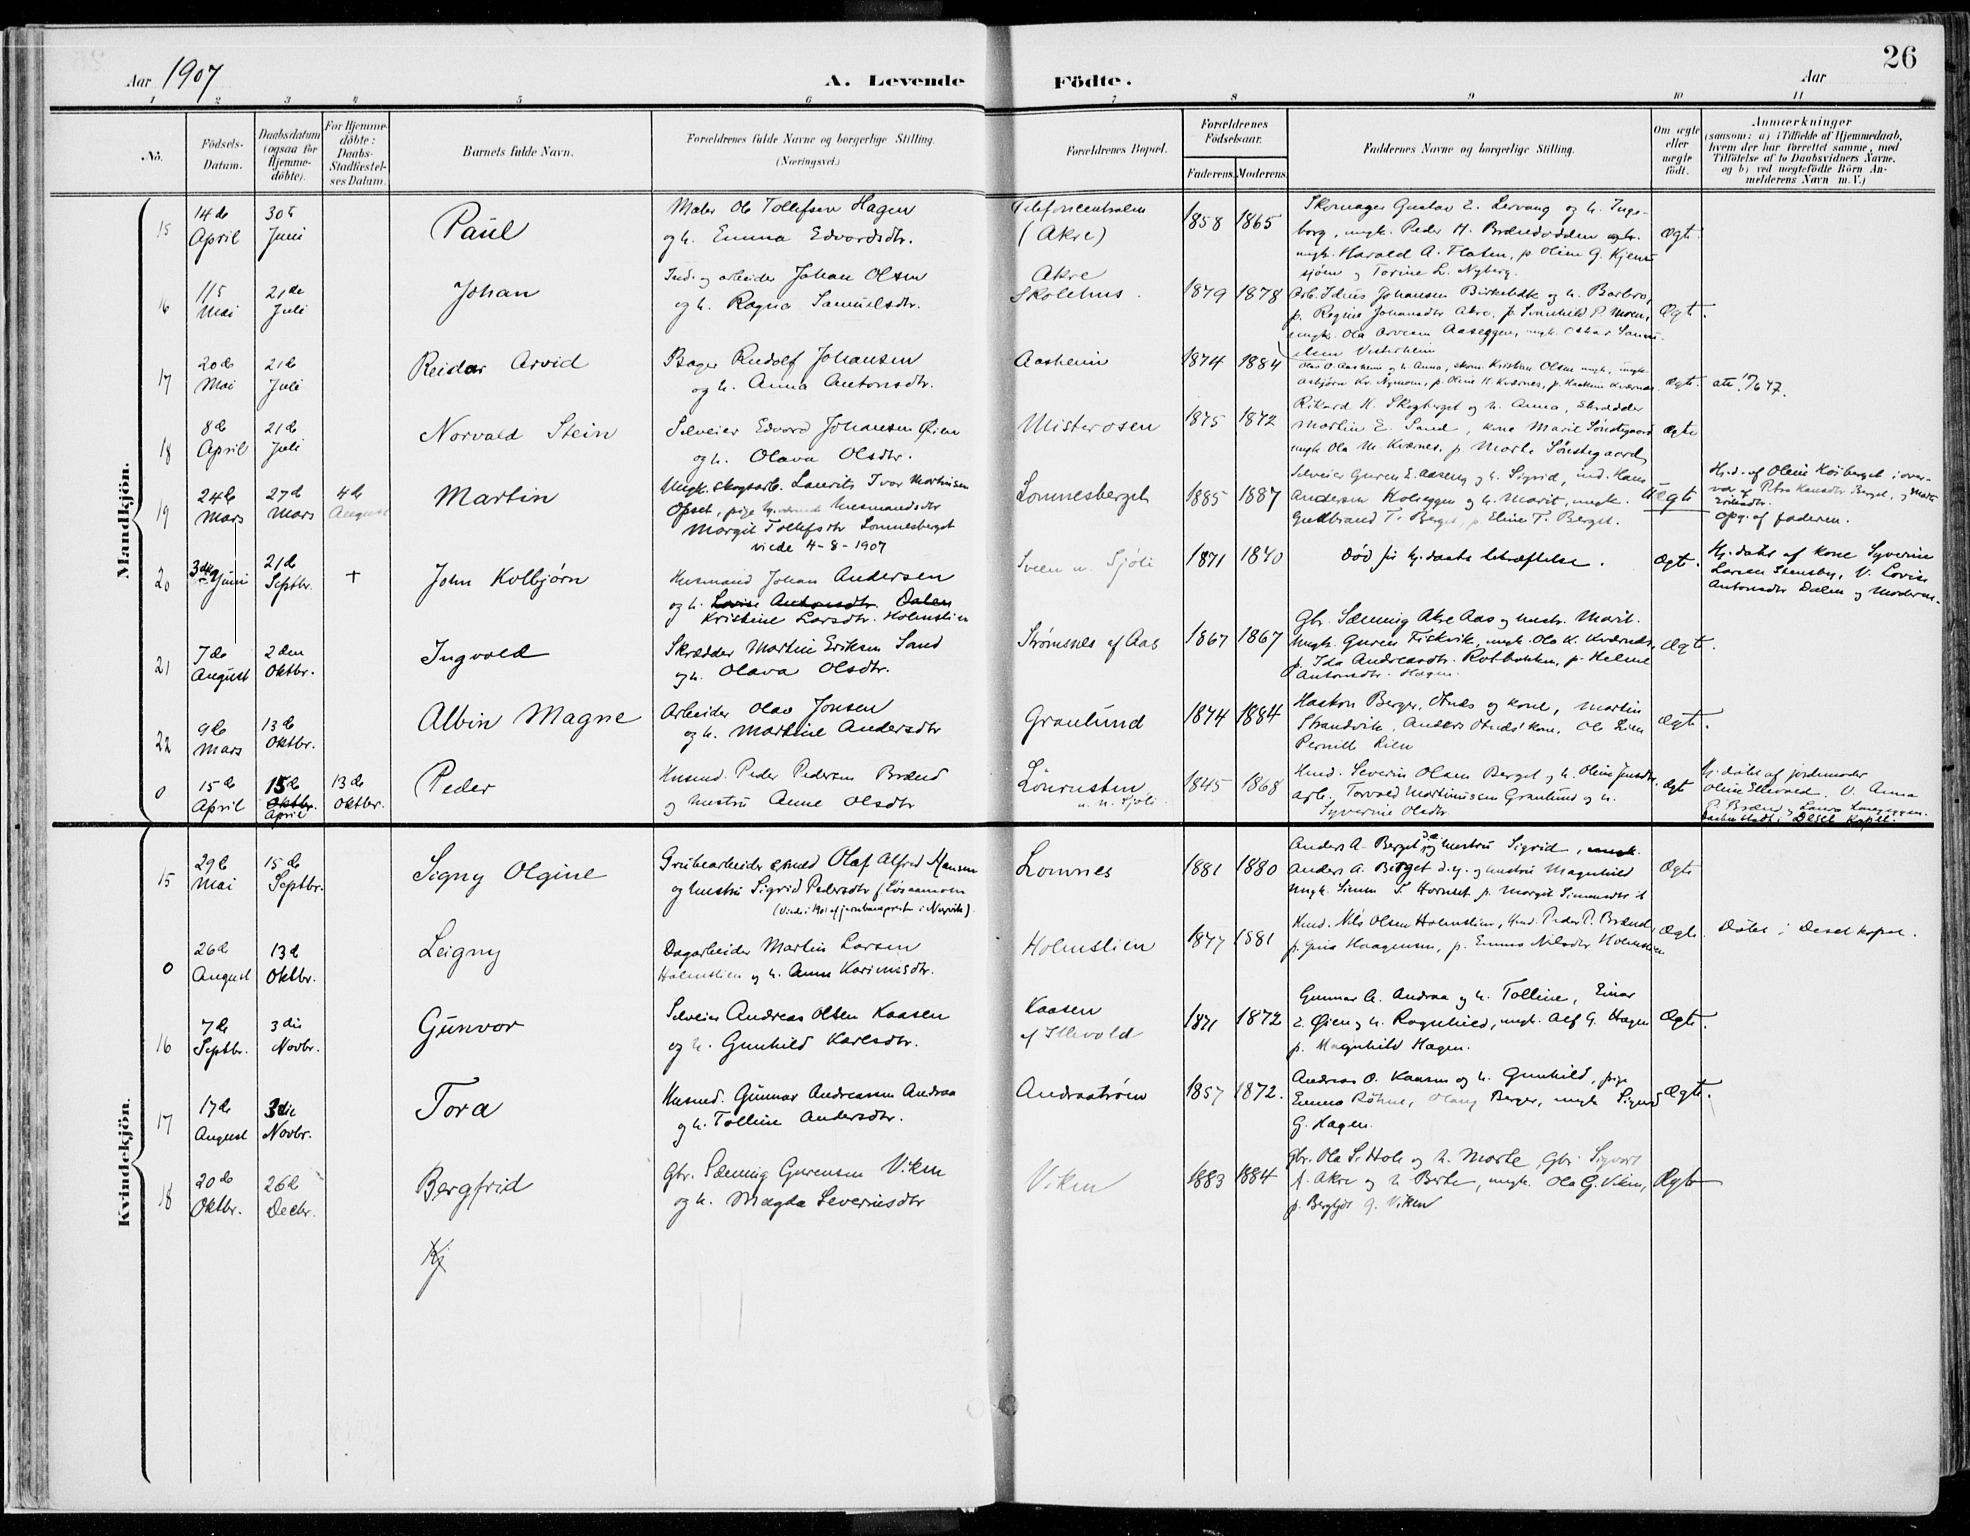 26
Aar 1907
A. Levende Födte.
Aar
1 2 3 4 5 6 7 8 9 10 11
No.
Födsels-Datum.
Daabsdatum (ogsaa for Hjemme-döbte).
For Hjemme-döbte: Daabs-Stadfæstel-ses Datum.
Barnets fulde Navn.
Forældrenes fulde Navne og borgerlige Stilling. (Næringsvei.)
Forældrenes Bopæl.
Forældrenes Födselsaar.
Faderens Moderens
Faddernes Navne og borgerlige Stilling.
Om ægte eller uægte födt.
Anmærkninger
(saasom: a) i Tilfælde af Hjemmedaab,
hvem der har forrettet samme, med
Tilföielse af to Daabsvidners Navne,
og b) ved uegtefödte Börn An-
melderens Navn m. V.)
Mandkjön.
15 14de April 30te Juni Paul
Maler Ole Tollefsen Hagen
og h. Emma Edvardsdtr.
Telefoncentralen
(Akre)
1858 1865
Skomager Gustav E. Lervang og h. Inge-
borg, ungk. Peder H. Brændodden
ungk. Harald A. Floten, p. Oline G. Kjem-
sjøen og Torine L. Nyberg.
Ægte
16 Mai 21de Juli Johan
Ind. og arbeider Johan Olsen
og h. Ragna Samuelsdtr.
Akre
Skolehus.
1879 1878
Arb. Johansen Birkebæk og h. Barbro,
p. Ragine Johansdtr Akre, p. Svanhild P. Moen,
ungk. Ola Aaseggen, ungk. Oskar
Vesterheim
Ægte.
17 20de Mai 21de Juli Reidar Arvid
Bager Rudolf Johansen
og h. Anna Antonsdtr.
Aasheim
1874 1884
Olav O. Aasheim og h. Anna, skom. Kristian Olsen ungk.
Asbjørn Kr. Nymoen, p. Oline H. Kværnes, p. Kværnes
Ægte.
18 8de April 21de Juli Norvald Stein
Selveier Edvard Johansen Øien
og h. Olava Olsdtr.
Misterosen
1875 1872
Rikard H. Skogberget og h. Anna, Skrædder
Martin E. Sand, kone Marie Sønstegaard
ungk. Ola M. Kværnes, p. Marte Sønstegaard
Ægte
19 24de Mars 27de Mars 4de August Martin
Ungk. skogsarb. Laurits Ivar Martinsen
Opset, pige
Margit Tollefsdtr Lomnesberget
viede 4-8-1907
Lomnesberget
1885 1887
Selveier Guren E. Aaseng og h. Sigrid, ind. Hans
Andersen Kolseggen og h. Marit, ungk.
Guldbrand T. Berget, p. Eline T. Berget.
Uægte
Hj.d. af Oline Koiberget i over-
vær af Petra Hansdtr Berget, og
Opg. af faderen.
20 3die Juni 21de Septbr. + John Kolbjørn
Husmand Johan Andersen
og h. Lovise Antonsdtr. Dalen
Kristine Larsdtr. Holmstien
Sveen u. Sjöli
1871 1870
Död för hj.daabs bekræftelse.
Ægte.
Hj. döbt af kone Syverine
Larsen Stensby, V. Lovise
Antonsdtr Dalen og Moderen.
21 7de August 2den Oktbr. Ingvald
Skrædder Martin Eriksen Sand
og h. Olava Olsdtr.
Strömsnes af Aas
1867 1867
Gbr. Sæming Akre Aas og hustr. Marit.
Ungk. Guren Fiskvik, ungk. Ola K. Kværnes,
p. Ida Andreasdtr. Rotbakken, p. Helene
Antonsdtr. Hagen.
Ægte.
22 9de Mars 13de Oktbr. Albin Magne
Arbeider Olav Jonsen
og h. Martine Andersdtr
Granlund
1874 1884
Haakon Berger, og kone, Martin
Strandvik, Anders kone, Ole Lien
Pernille Lien
Ægte.
0 15de April 15de Oktbr. April 13de Oktbr. Peder
Husmd. Peder Pedersen Brænd
og hustru Anne Olsdtr
u. n. Sjöli.
1845 1868
Husd. Severin Olsen Berget og h. Oline
arb. Torvald Martinussen Granlund og h.
Syverine Olsdtr.
Ægte
Hj. döbt af jordemoder
Oline Ellevold. V. Anna
P. Bræn og Laura
Desed Kapel.
Kvindekjön.
15 29de Mai 15de Septbr. Signy Olgine
Grubearbeider Olaf Alfred Hansen
og hustru Sigrid Pedersdtr
(Viede i 1901 af jernbaneprest i Narvik).
Lomnes
1881 1880
Anders A. Berget og hustru Sigrid, ungk.
Anders A. Berget d.y. og hustru Magnhild
Ungk. Simen T. Hornset p. Margit Simensdtr
Ægte
0 26de August 13de Oktbr. Leigny
Dagarbeider Martin Larsen
Holmstien og h. Anne Karinusdtr.
Holmstien
1877 1881
Husd. Nils Olsen Holmstien, Husd. Peder P. Brænd,
p. Haagensen, p. Emma Nilsdtr Holmstien
Ægte.
Döbt i Deset kapel.
16 7de Septbr. 3die Novbr. Gunvor
Selveier Andreas Olsen Kaasen
og h. Gunhild Karlsdtr.
Kaasen
af Illevold
1871 1872
Gunnar A. Andraa og h. Tolline, Einar
E. Øien og h. Ragnhild, ungk. Alf G. Hagen
p. Magnhild Hagen.
Ægte.
17 17de August 3die Novbr. Tora
Husmd. Gunnar Andreassen Andraa
og h. Tolline Andersdtr.
Andraatrøen
1857 1872.
Andreas O. Kaasen og h. Gunhild, pige
Emma Röhne, Olaug Berger, ungk. Sigurd
G. Hagen.
Ægte.
18 20de Oktbr. 26de Decbr. Bergfrid
Gbr. Sæming Gurensen Viken
og h. Magda Severinsdtr
Viken
1883 1884
Gbr. Ola S. Hole og h. Marte, Gbr. Sigvart
A. Akre og h. Berte, ungk. Ola G. Viken,
p. Bergljot G. Viken
Ægte
Kj